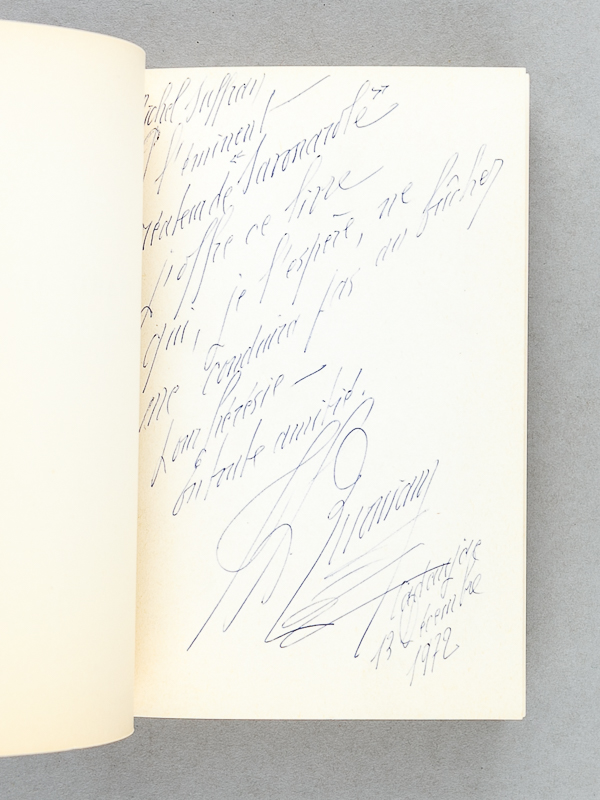 Michel Suffran
à l'éminent
créateur de "Savonarole"
j'offre ce livre
qui, je l'espère, ne
me conduira pas au bûcher
pour hérésie —
En toute amitié.
13 décembre
1972